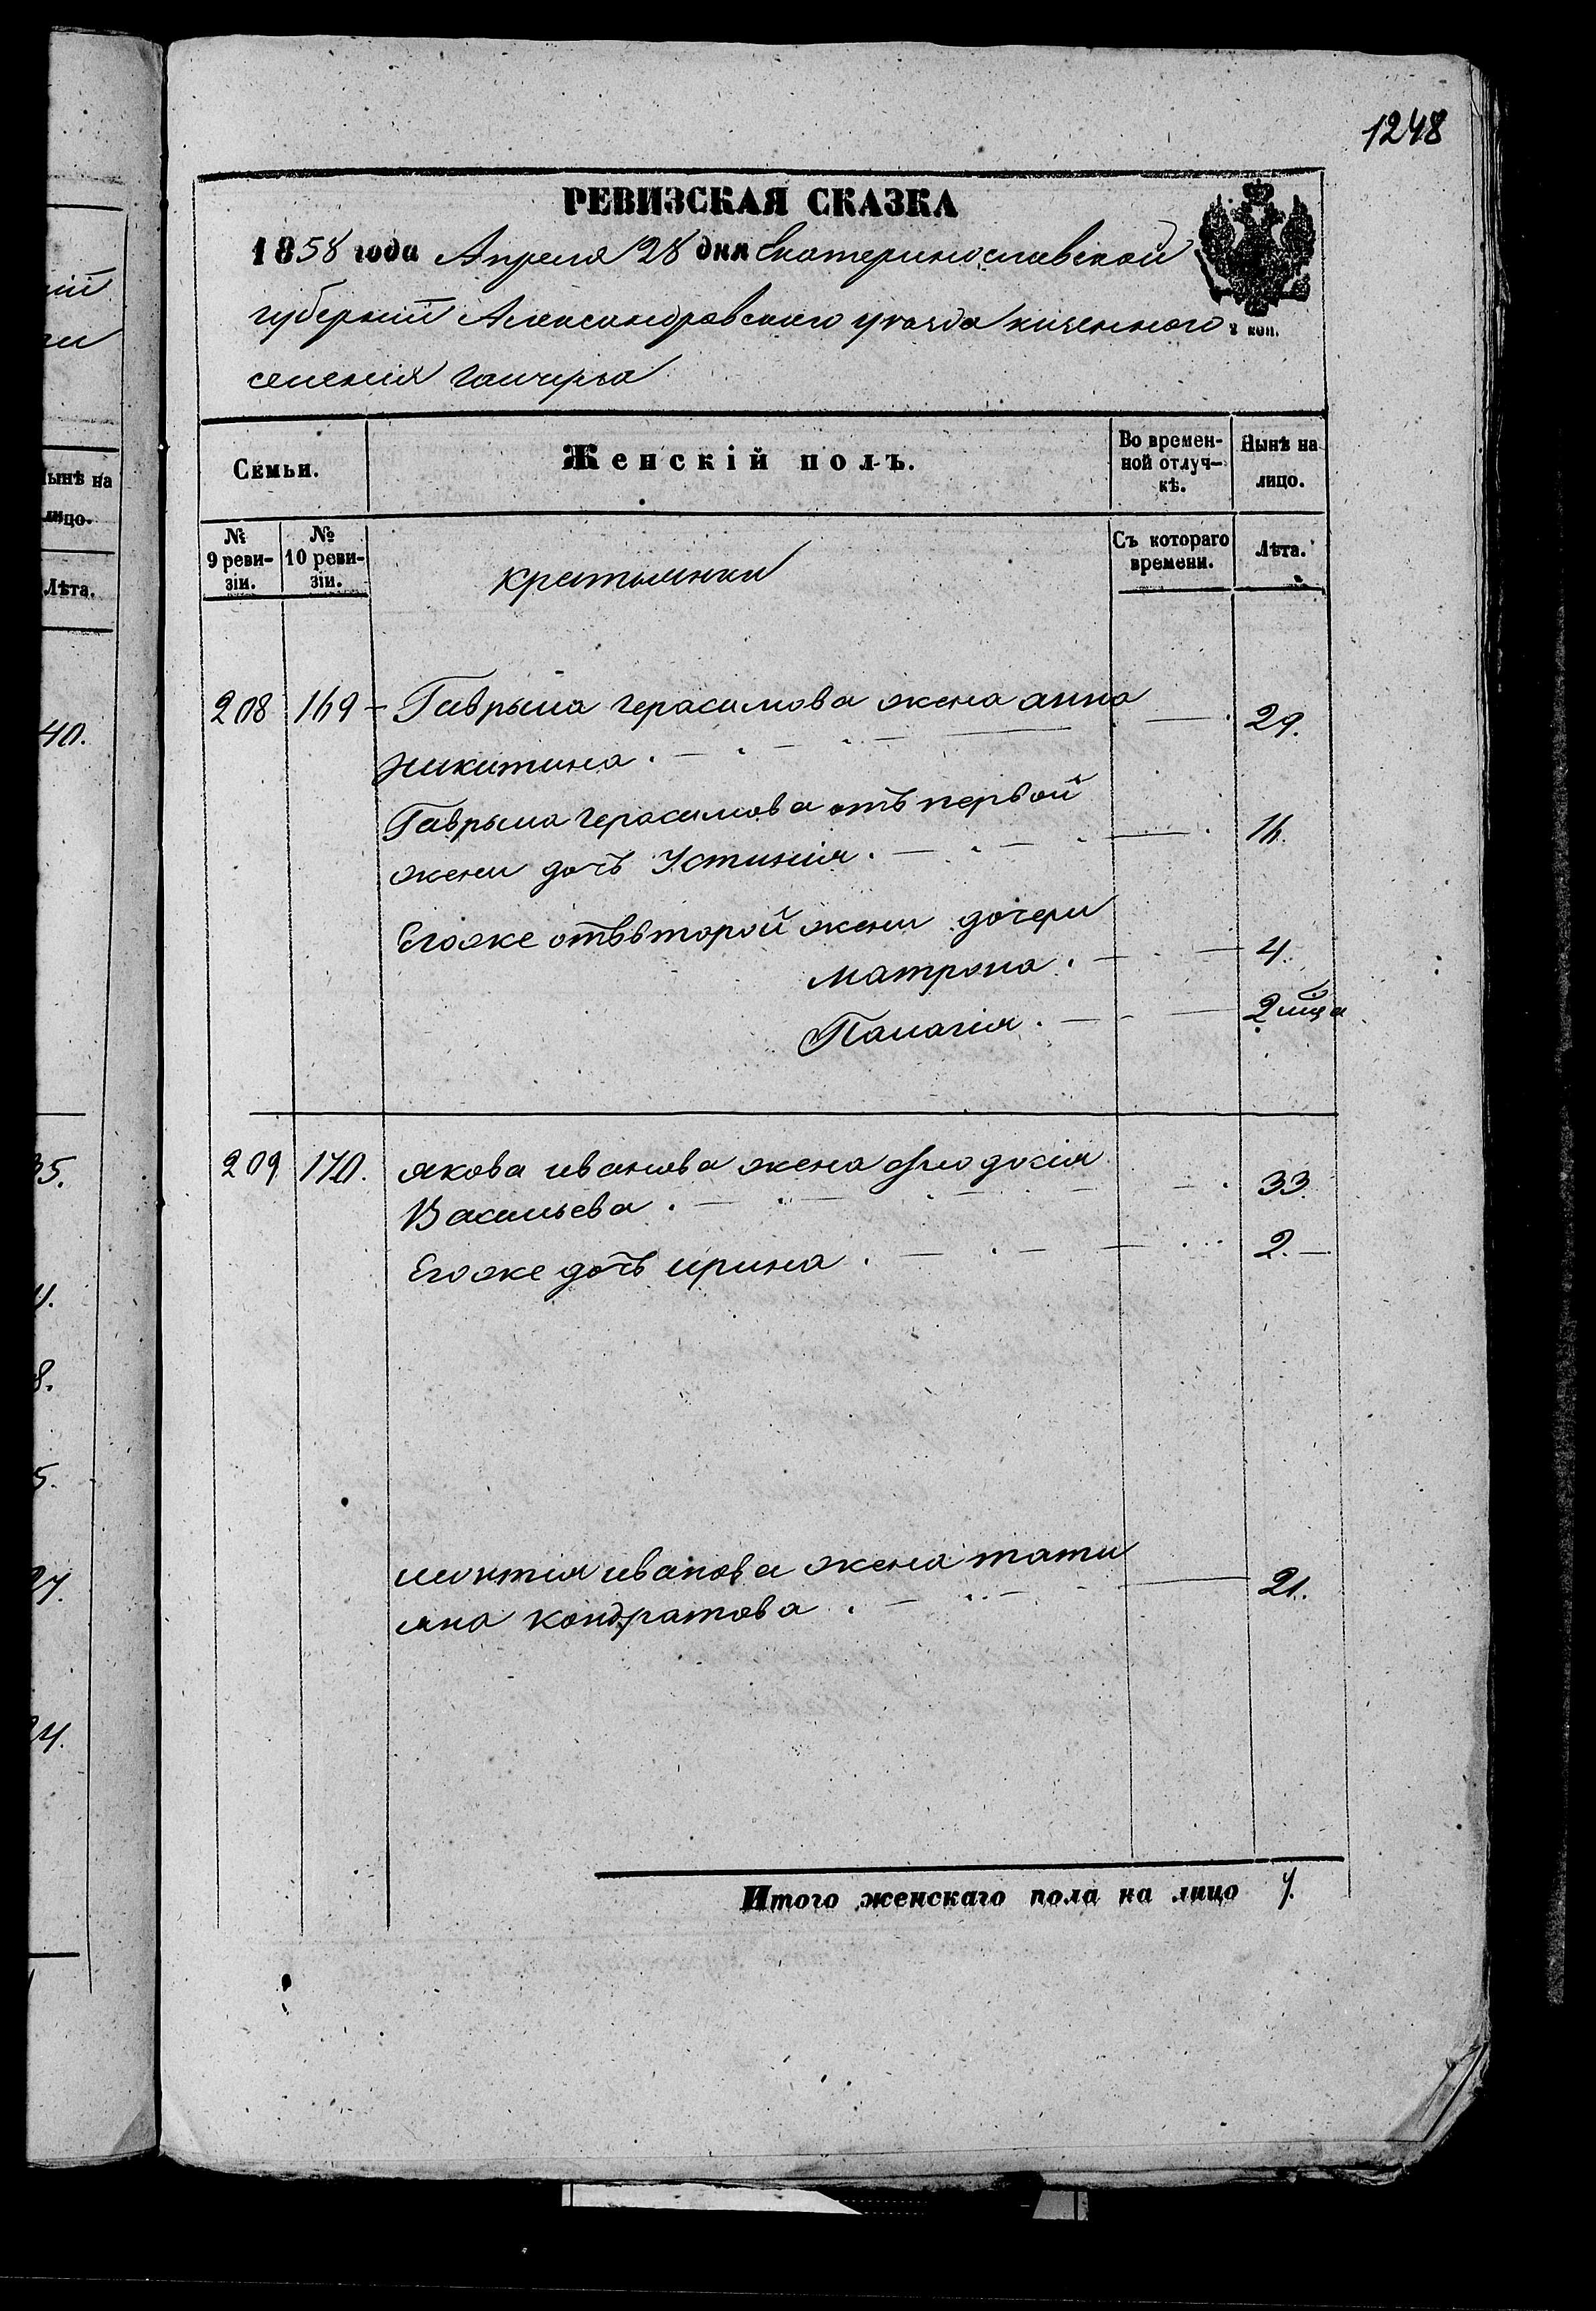 1248
РЕВИЗСКАЯ СКАЗКА
1858 года Апреля 28 дня Екатеринославской
губернии Александровского уезда казенного
2 коп.
селения Гайчула
Семьи.
Женскій полъ.
Во времен-
ной отлуч-
кѣ.
Нынѣ на
лицо.
№
9 реви-
зіи.
№
10 реви-
зіи.
крестьянки
Съ котораго
времени.
Лѣта.
208 169 Гаврыла Герасимова жена анна 29.
Никитина.
Гаврыла Герасимова отъ первой
жены дочь Устинія. 11.
Егоже отъ второй жены дочери
матрона. 4.
Палагія. 2 мца
209 170. якова иванова жена феодосія 33.
Васильева.
Егоже дочь ирина. 2.
леонтія иванова жена тати 21.
яна кондратова.
Итого женскаго пола на лицо 7.
Нынѣ на
лицо.
Лѣта.
40.
35.